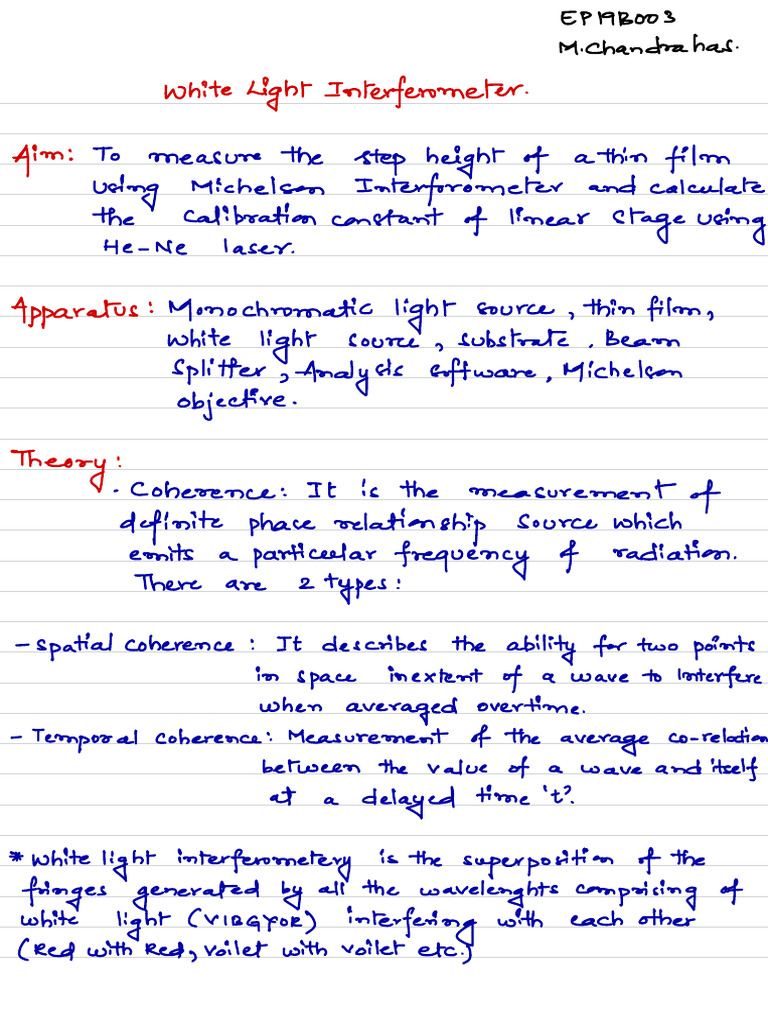 EP19B003
M.Chandrahas.
White Light Interferometer.
Aim: To measure the step height of a thin film
using Michelson Interforometer and calculate
the calibration constant of linear stage using
He-Ne laser.
Apparatus: Monochromatic light source, thin film,
white light source, substrate, Beam
Splitter, Analysis software, Michelson
objective.
Theory:
· Coherence: It is the measurement of
definite phase relationship source which
emits a particular frequency of radiation.
There are 2 types:
- Spatial coherence: It describes the ability for two points
in space inextent of a wave to Interfere
when averaged overtime.
- Temporal coherence: Measurement of the average co-relation
between the value of a wave and itself
at a delayed time 't'.
* White light interferometery is the superposition of the
fringes generated by all the wavelenghts comprising of
white light (VIBGYOR) interfering with each other
(Red with Red, voilet with voilet etc.)